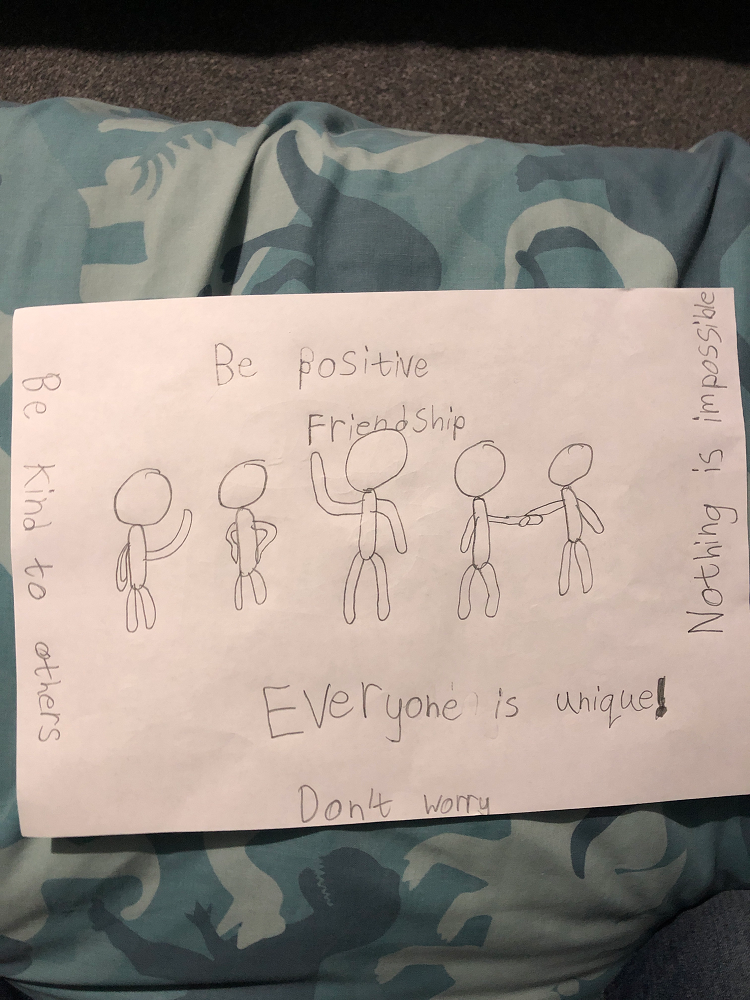 Be positive
Friendship
Be Kind to others
Nothing is impossible
Everyone is unique!
Don't worry